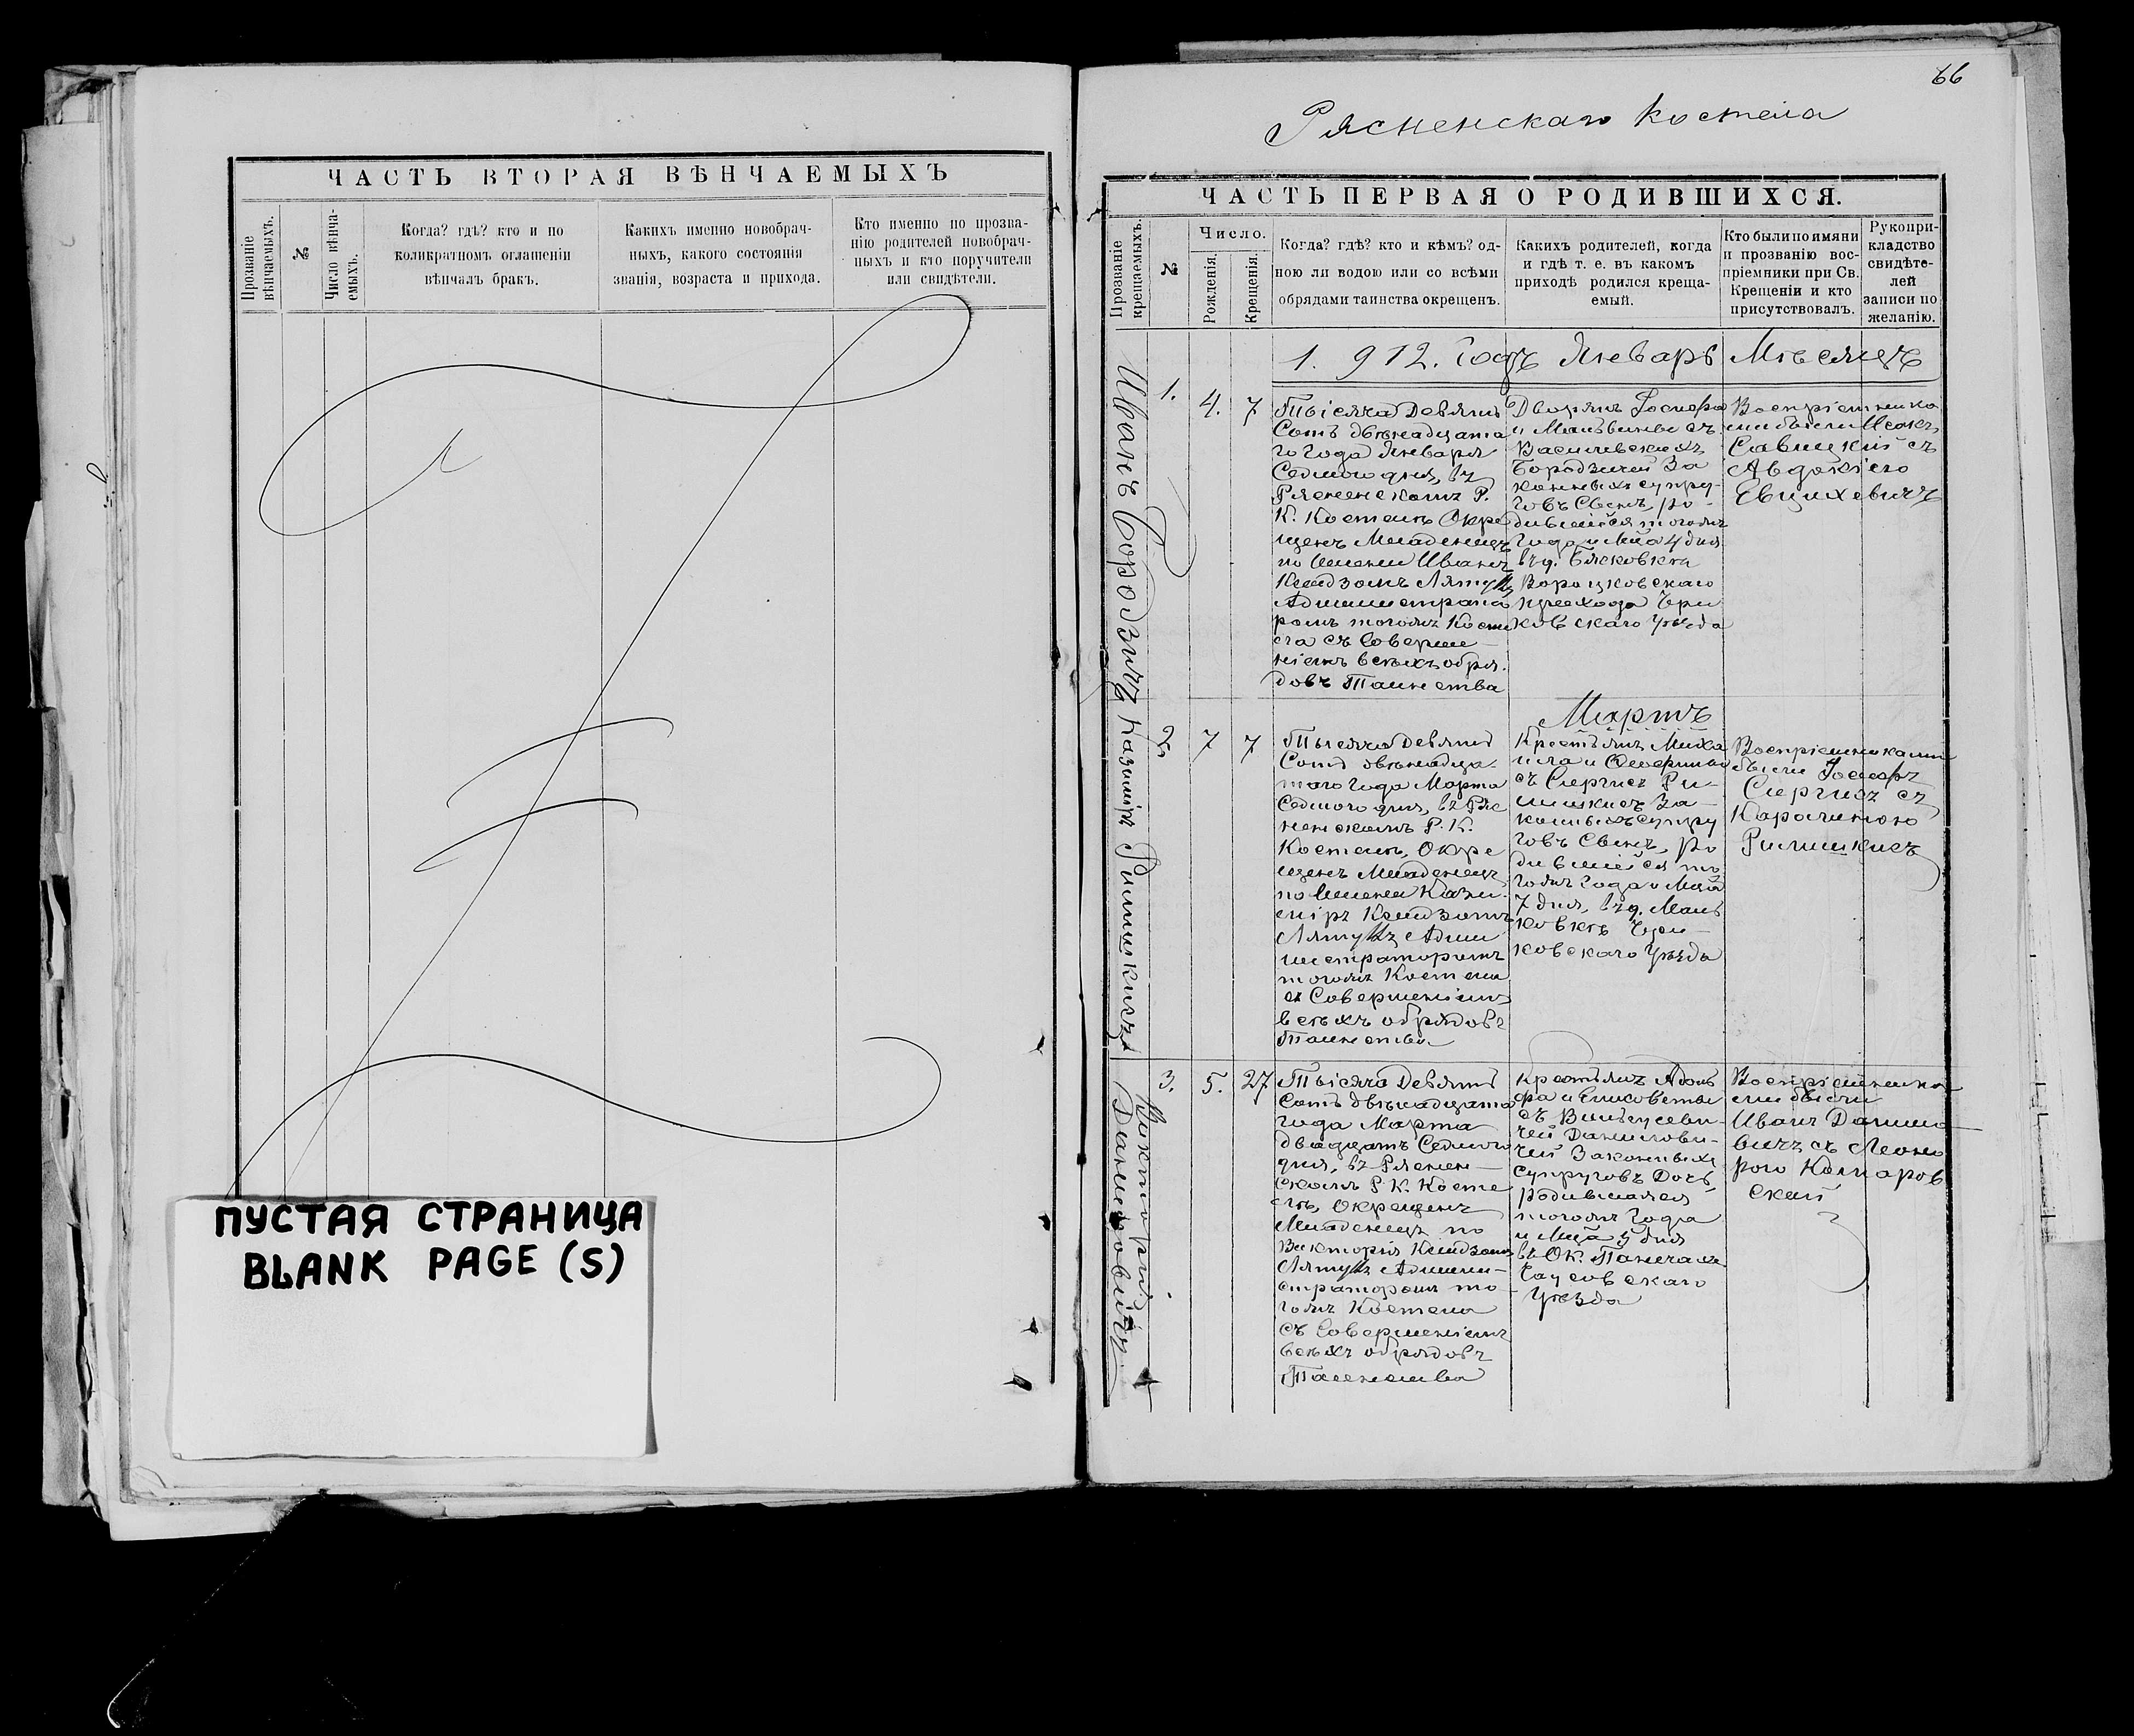 ЧАСТЬ ВТОРАЯ ВѢНЧАЕМЫХЪ
Прозваніе вѣнчаемыхъ.
№
Число вѣнча-
емыхъ.
Когда? гдѣ? кто и по
коликратномъ оглашеніи
вѣнчалъ бракъ.
Какихъ именно новобрач-
ныхъ, какого состоянія
званія, возраста и прихода.
Кто именно по прозва-
нію родителей новобрач-
ныхъ и кто поручители
или свидѣтели.
ПУСТАЯ СТРАНИЦА
BLANK PAGE (S)
66
Рясненскаго Костела
ЧАСТЬ ПЕРВАЯ О РОДИВШИХСЯ.
Прозваніе
крещаемыхъ.
№
Число.
Рожденія.
Крещенія.
Когда? гдѣ? кто и кѣмъ? од-
ною ли водою или со всѣми
обрядами таинства окрещенъ.
Какихъ родителей, когда
и гдѣ т. е. въ какомъ
приходѣ родился креща-
емый.
Кто были по имяни
и прозванію вос-
пріемники при Св.
Крещеніи и кто
присутствовалъ.
Рукопри-
кладство
свидѣте-
лей
записи по
желанію.
1. 912. Годъ Январь Мѣсяцъ
Иванъ Бородзичъ
1.
4.
7
Тысяча Девять
Сотъ двѣнадцата
го Года Января
Седмого дня, въ
Рясненскомъ Р.
К. Костелѣ Окре
щенъ Младенецъ
по Имени Иванъ
Ксендзомъ
Администрато
ромъ тогожъ Косте
ла съ Соверше
ніемъ всѣхъ обря.
довъ Таинства
Дворянъ Іосифа
и Мальвины съ
Василевскихъ
Бородзичей За
конныхъ супру-
говъ Сынъ, ро-
дившійся тогожъ
Года и Мѣа 4 дня
въ д.
прихода Чери
ковскаго Уѣзда
Воспріемника
ми были
Савицкій съ
Авдотіею
Казиміръ
2.
7
7
Тысяча Девять
Сотъ двѣнадца
таго Года Марта
Седмого дня, въ Ряс
ненскомъ Р. К.
Костелѣ, Окре
щенъ Младенецъ
по Имени Кази-
міръ Ксендзомъ
Админи
страторомъ
тогожъ Костела
съ Совершеніемъ
всѣхъ обрядовъ
Таинства
Мартъ
Крестьянъ Миха
ила и
За
конныхъ супру
говъ Сынъ, ро
дившійся то
гожъ Года и Мѣа
7 дня, въ д. Мань
ковкѣ Чери-
ковскаго Уѣзда
Воспріемниками
были Іосифъ
съ
Каролиною
Викторія
Даниловичъ
3.
5.
27
Тысяча Девять
Сотъ двѣнадцата
года Марта
двадцать Седмого
дня, въ Ряснен-
скомъ Р. К. Косте
лѣ, Окрещенъ
Младенецъ по
Викторія Ксендзомъ
Админи-
страторомъ то-
гожъ Костела
съ Совершеніемъ
всѣхъ обрядовъ
Таинства
Крестьянъ Адоль
фа и Елисаветы
Данилови-
чей Законныхъ
супруговъ Дочь
родившаяся
тогожъ Года
и Мѣа 5 дня
въ Ок.
Чаусовскаго
Уѣзда
Воспріемника
ми были
Иванъ Данило
вичъ съ Леоно
рою Комаров
ской